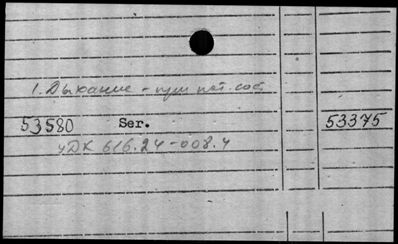 1. Дыхание - при пат. сост.
53580 Ser. 53375
УДК 616.24-008.4